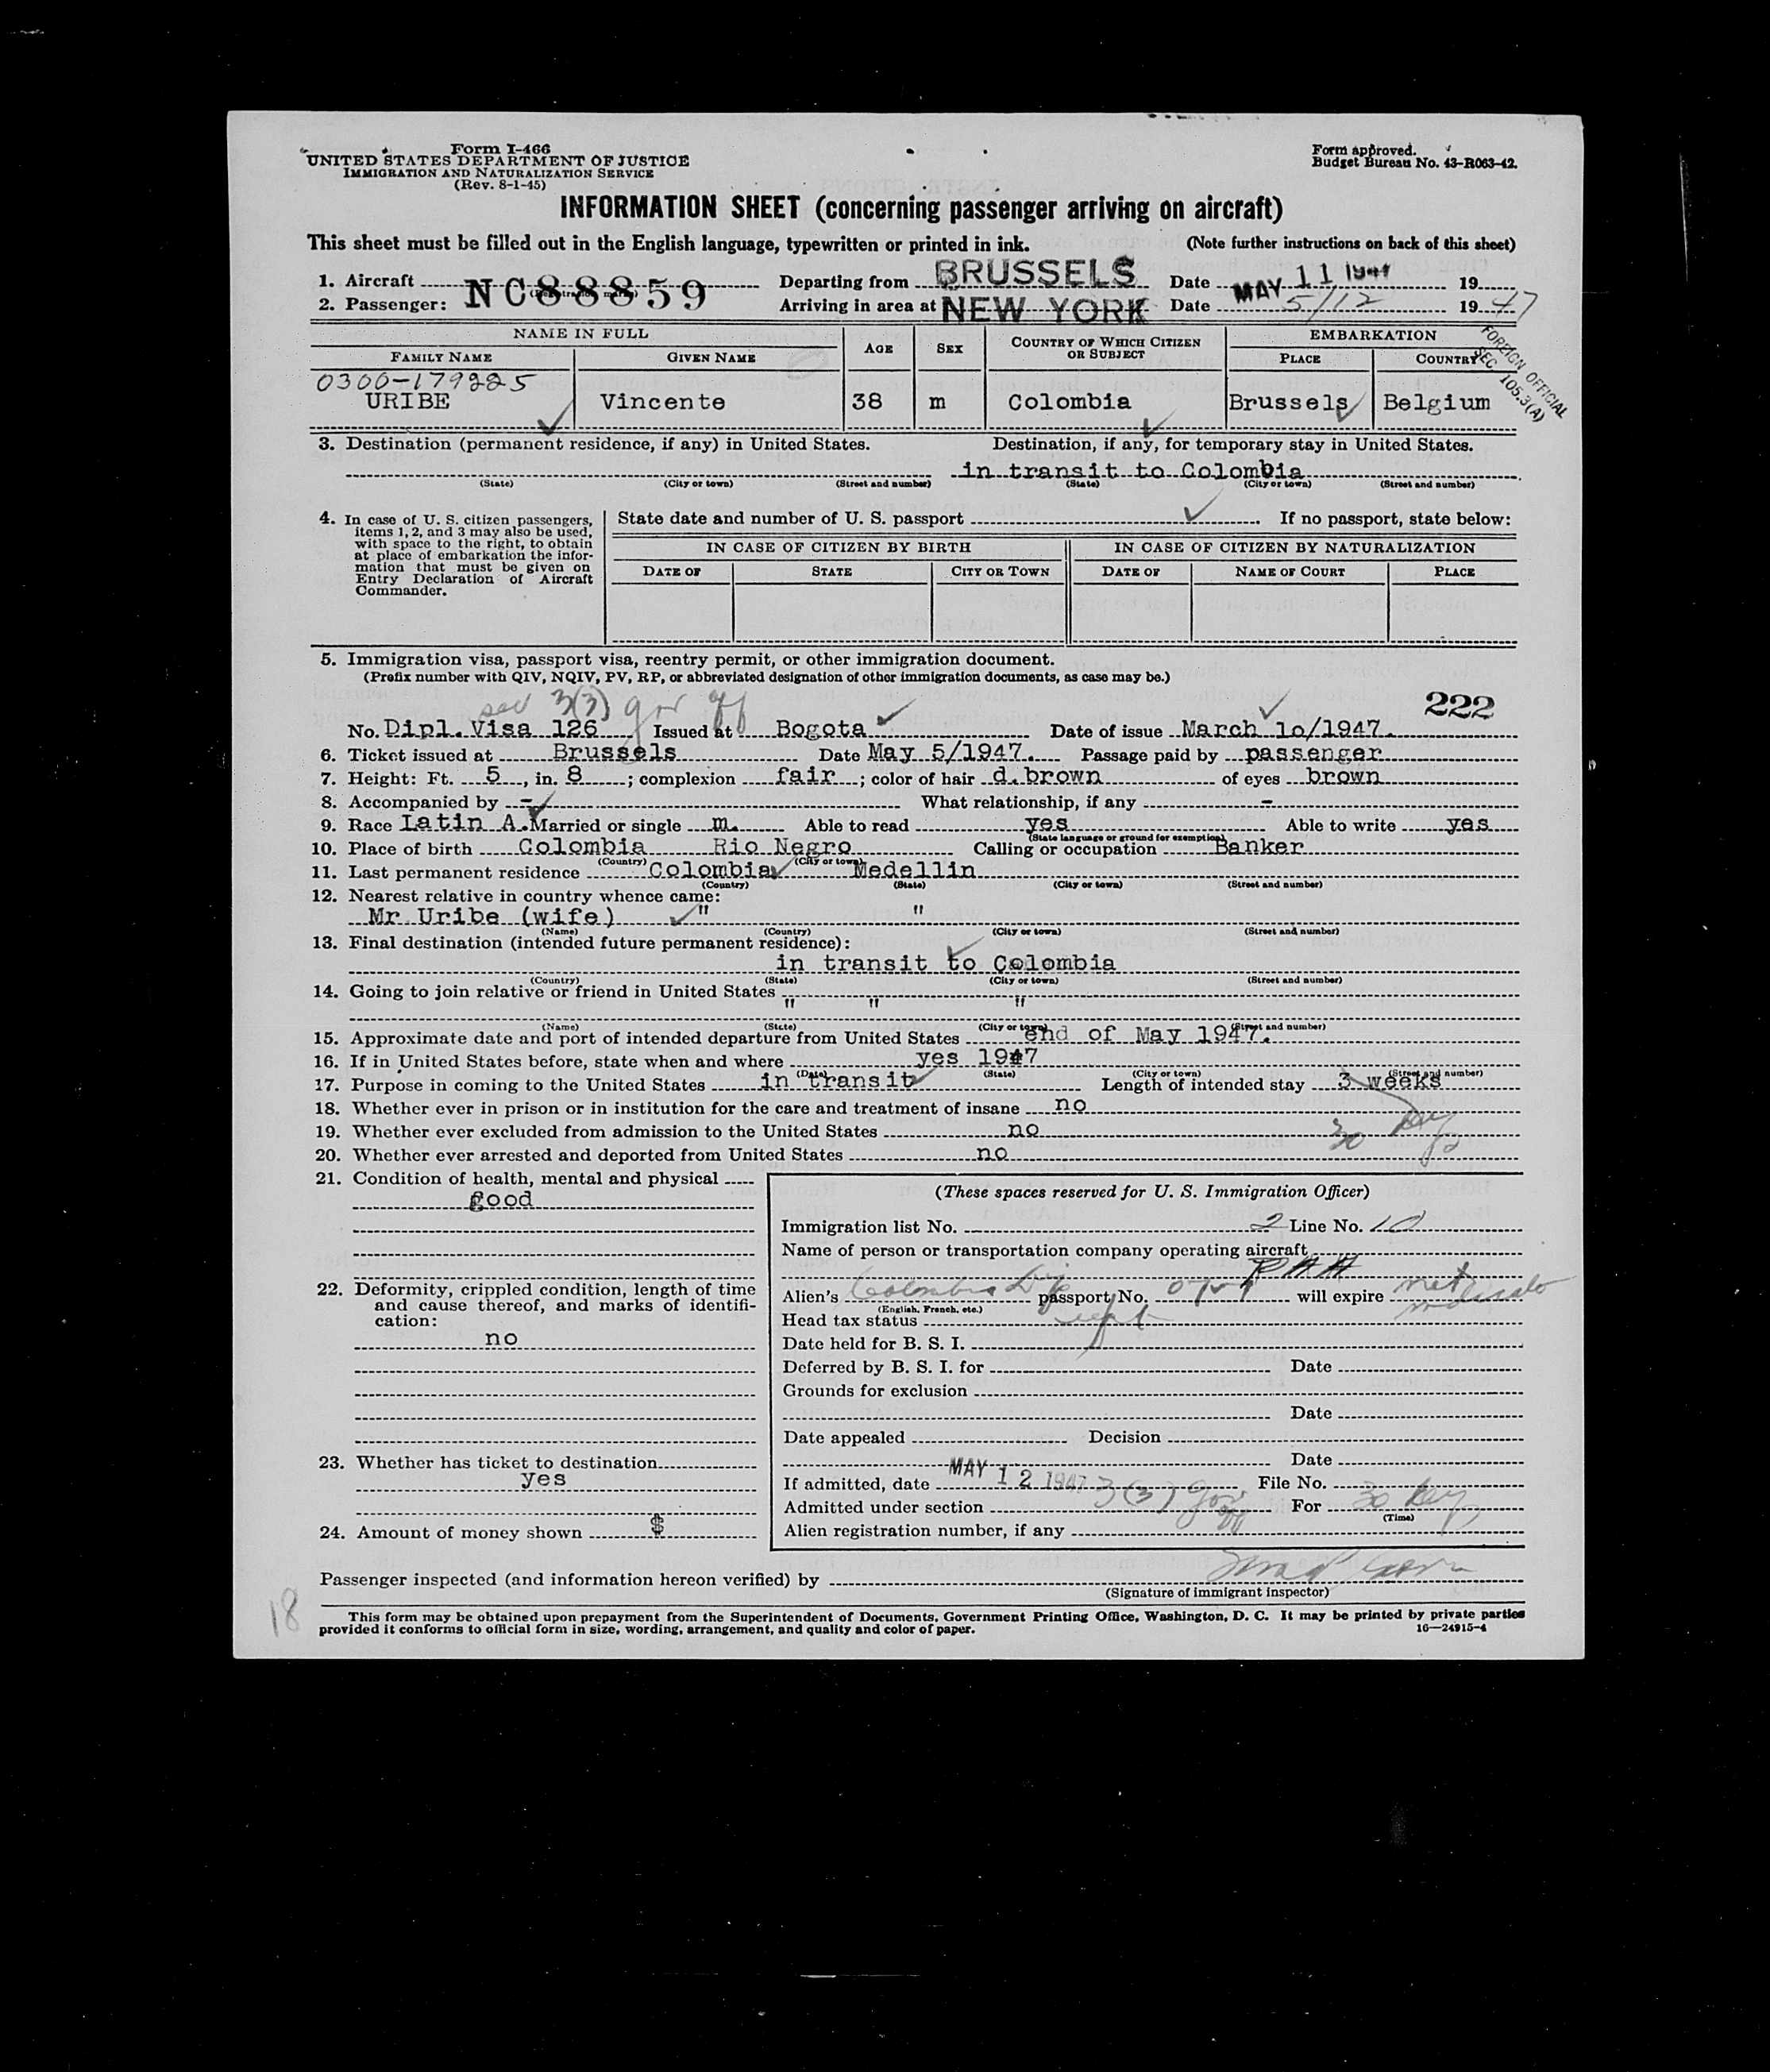 Form I-466
UNITED STATES DEPARTMENT OF JUSTICE
IMMIGRATION AND NATURALIZATION SERVICE
(Rev. 8-1-45)
Form approved.
Budget Bureau No. 43-R063-42.
INFORMATION SHEET (concerning passenger arriving on aircraft)
This sheet must be filled out in the English language, typewritten or printed in ink. (Note further instructions on back of this sheet)
1. Aircraft NC88859 Departing from BRUSSELS Date MAY 11 1947 19
2. Passenger: Arriving in area at NEW YORK Date 5/12 1947
NAME IN FULL AGE SEX COUNTRY OF WHICH CITIZEN OR SUBJECT EMBARKATION
FAMILY NAME GIVEN NAME PLACE COUNTRY
FOREIGN OFFICIAL
SEC. 105.3(A)
0300-179225
URIBE Vincente 38 m Colombia Brussels Belgium
3. Destination (permanent residence, if any) in United States. Destination, if any, for temporary stay in United States.
in transit to Colombia
(State) (City or town) (Street and number) (State) (City or town) (Street and number)
4. In case of U. S. citizen passengers, items 1, 2, and 3 may also be used, with space to the right, to obtain at place of embarkation the information that must be given on Entry Declaration of Aircraft Commander.
State date and number of U. S. passport If no passport, state below:
IN CASE OF CITIZEN BY BIRTH IN CASE OF CITIZEN BY NATURALIZATION
DATE OF STATE CITY OR TOWN DATE OF NAME OF COURT PLACE
5. Immigration visa, passport visa, reentry permit, or other immigration document.
(Prefix number with QIV, NQIV, PV, RP, or abbreviated designation of other immigration documents, as case may be.)
sec 3(3) gov off 222
No. Dipl. Visa 126 Issued at Bogota Date of issue March 1o/1947.
6. Ticket issued at Brussels Date May 5/1947. Passage paid by passenger
7. Height: Ft. 5, in. 8; complexion fair; color of hair d.brown of eyes brown
8. Accompanied by - What relationship, if any -
9. Race Latin A. Married or single m. Able to read yes Able to write yes
(State language or ground for exemption)
10. Place of birth Colombia Rio Negro Calling or occupation Banker
(Country) (City or town)
11. Last permanent residence Colombia Medellin
(Country) (State) (City or town) (Street and number)
12. Nearest relative in country whence came:
Mr.Uribe (wife) " "
(Name) (Country) (City or town) (Street and number)
13. Final destination (intended future permanent residence):
in transit to Colombia
(Country) (State) (City or town) (Street and number)
14. Going to join relative or friend in United States
" " "
(Name) (State) (City or town) (Street and number)
15. Approximate date and port of intended departure from United States end of May 1947.
16. If in United States before, state when and where yes 1947
(Date) (State) (City or town) (Street and number)
17. Purpose in coming to the United States in transit Length of intended stay 3 weeks
18. Whether ever in prison or in institution for the care and treatment of insane no
19. Whether ever excluded from admission to the United States no 30 days
20. Whether ever arrested and deported from United States no
21. Condition of health, mental and physical
good
22. Deformity, crippled condition, length of time and cause thereof, and marks of identification:
no
23. Whether has ticket to destination
yes
24. Amount of money shown $
(These spaces reserved for U. S. Immigration Officer)
Immigration list No. 2 Line No. 10
Name of person or transportation company operating aircraft
PAA
Alien's Colombia Dip passport, No. will expire not
(English, French, etc.)
Head tax status
Date held for B. S. I.
Deferred by B. S. I. for Date
Grounds for exclusion
Date
Date appealed Decision
Date
If admitted, date MAY 12 1947 File No.
Admitted under section 3(3) gov off For 30 days
(Time)
Alien registration number, if any
Passenger inspected (and information hereon verified) by
(Signature of immigrant inspector)
18
This form may be obtained upon prepayment from the Superintendent of Documents, Government Printing Office, Washington, D. C. It may be printed by private parties
provided it conforms to official form in size, wording, arrangement, and quality and color of paper. 16—24915-4